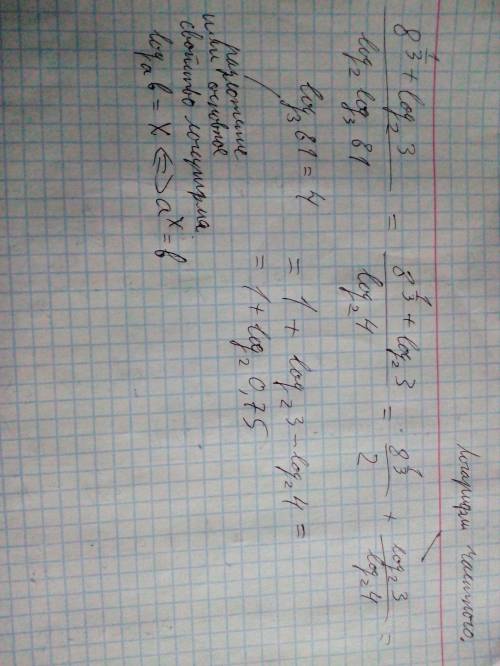 логарифм частного.
8^{1/3} + log₂ 3 / log₂ log₃ 81 = 8^{1/3} + log₂ 3 / log₂ 4 = 8^{1/3} / 2 + log₂ 3 / log₂ 4 =
log₃ 81 = 4
= 1 + log₂ 3 - log₂ 4 =
= 1 + log₂ 0,75
или основное
свойство логарифма
logₐ b = x ⇔ aˣ = b